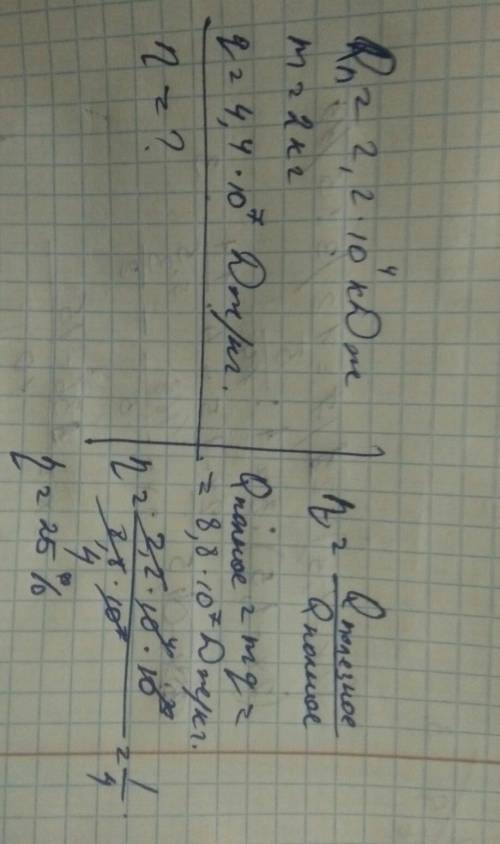 Qп = 2,2 · 10⁴ кДж
m = 2 кг
q = 4,4 · 10⁷ Дж/кг.
η = ?
η = Qполезное / Qполное
Qполное = mq =
= 8,8 · 10⁷ Дж/кг.
η = 2,2 · 10⁴ · 10³ / 8,8 · 10⁷ = 1/4.
4
η = 25%